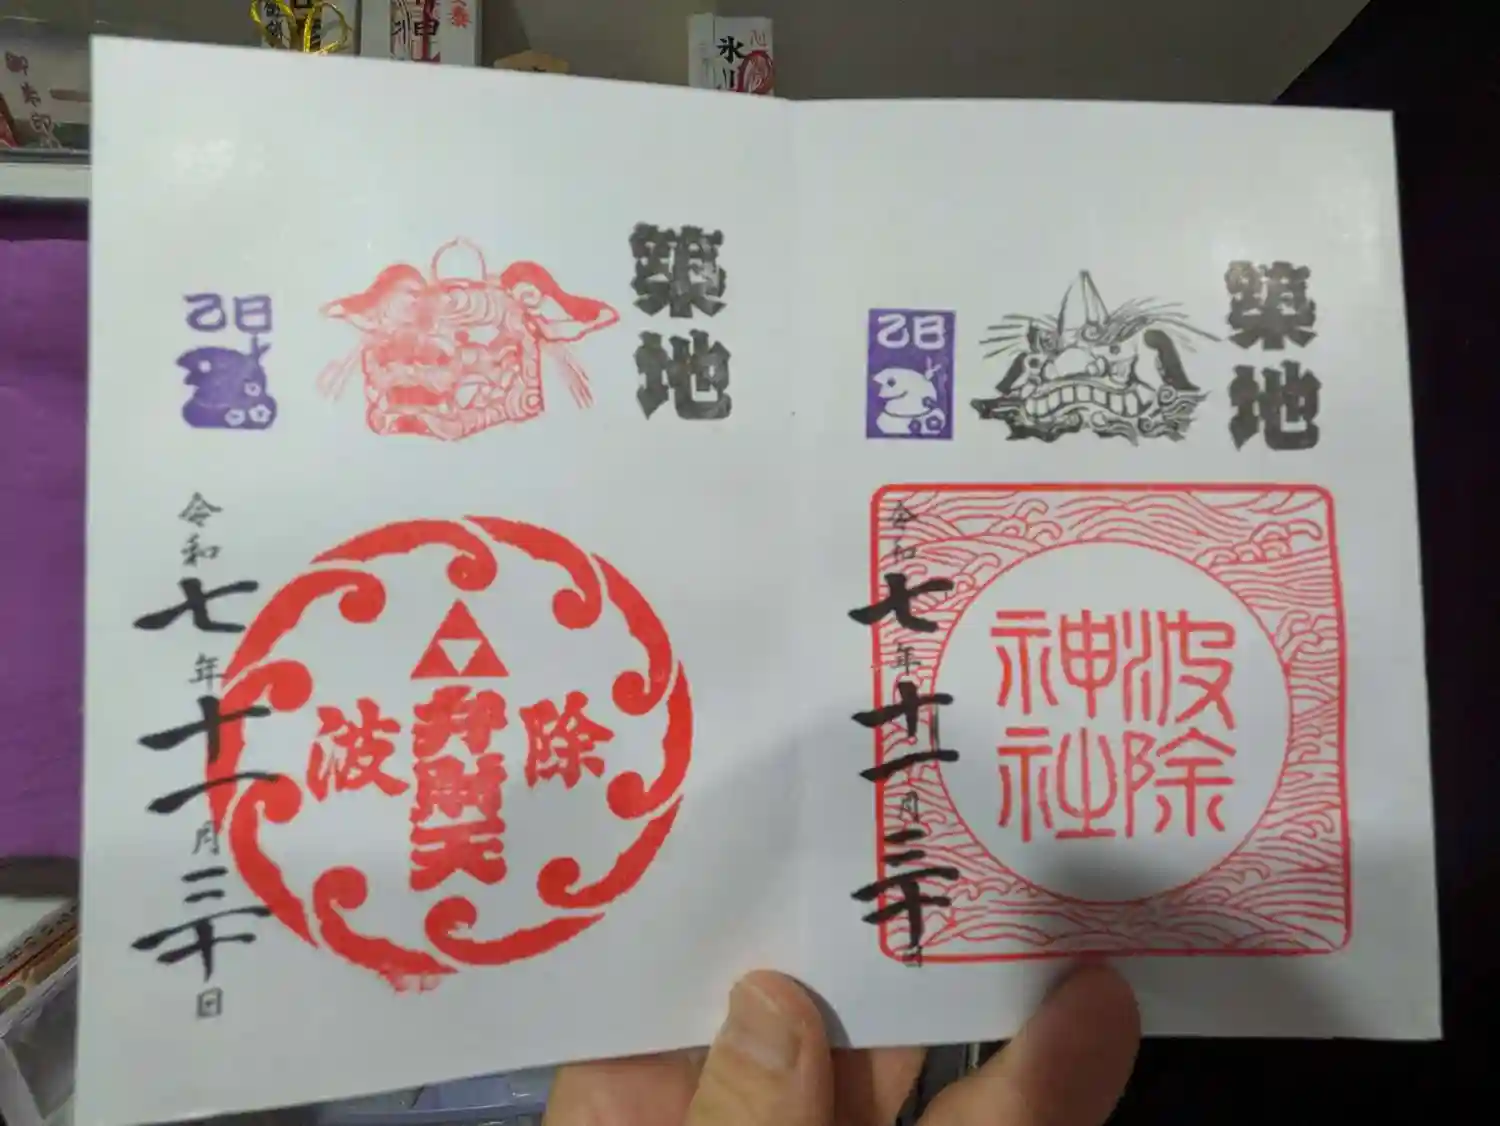 築地
乙巳
波除
神社
令和七年十一月三十日
築地
乙巳
波 弁財天 除
令和七年十一月三十日
御朱印
氷川